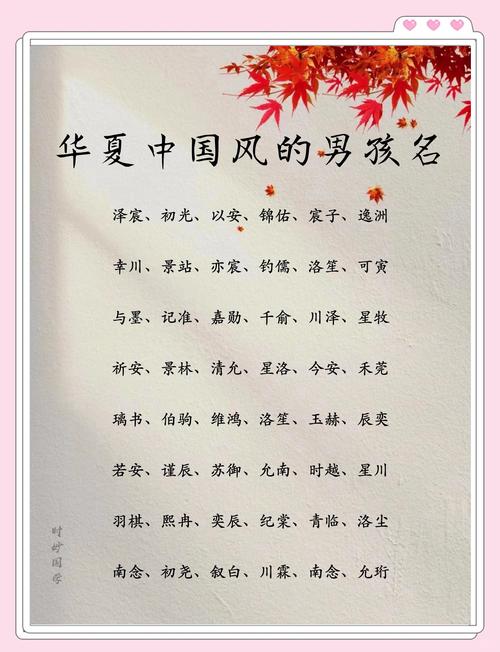 华夏中国风的男孩名
泽宸、初光、以安、锦佑、宸子、逸洲
幸川、景站、亦宸、钓儒、洛笙、可寅
与墨、记准、嘉勋、千俞、川泽、星牧
祈安、景林、清允、星洛、今安、禾莞
璃书、伯驹、维鸿、洛笙、玉赫、辰奕
若安、谨辰、苏御、允南、时越、星川
羽棋、熙冉、奕辰、纪棠、青临、洛尘
南念、初尧、叙白、川霖、南念、允珩
时妙国学